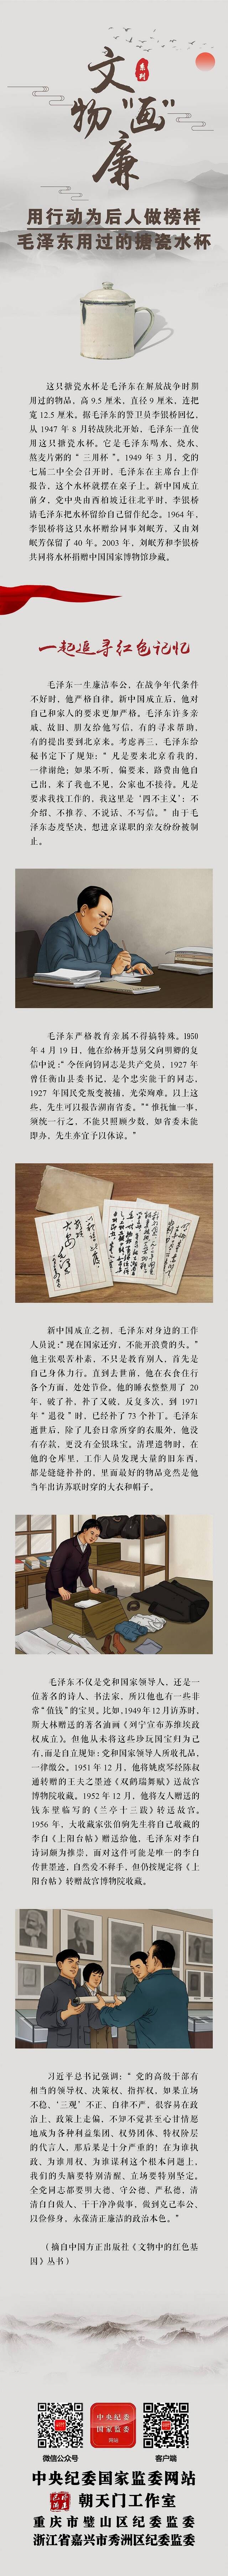 文物"画"廉
系列
用行动为后人做榜样
毛泽东用过的搪瓷水杯
这只搪瓷水杯是毛泽东在解放战争时期
用过的物品，高 9.5 厘米，直径 9 厘米，连把
宽 12.5 厘米。据毛泽东的警卫员李银桥回忆，
从 1947 年 8 月转战陕北开始，毛泽东一直使
用这只搪瓷水杯。它是毛泽东喝水、烧水、
熬麦片粥的"三用杯"。1949 年 3 月，党的
七届二中全会召开时，毛泽东在主席台上作
报告，这个水杯就摆在桌子上。新中国成立
前夕，党中央由西柏坡迁往北平时，李银桥
请毛泽东把水杯留给自己留作纪念。1964 年，
李银桥将这只水杯赠给同事刘岷芳，又由刘
岷芳保留了 40 年。2003 年，刘岷芳和李银桥
共同将水杯捐赠中国国家博物馆珍藏。
一起追寻红色记忆
毛泽东一生廉洁奉公，在战争年代条件
不好时，他严格自律。新中国成立后，他对
自己和家人的要求更加严格。毛泽东许多亲
戚、故旧、朋友给他写信，有的寻求帮助，
有的提出要到北京来。考虑再三，毛泽东给
秘书定下了规矩："凡是要来北京看我的，
一律谢绝；如果不听，偏要来，路费由他自
己出，来了我也不见，公家也不接待。凡是
要求我找工作的，我这里是'四不主义'：不
介绍、不推荐、不说话、不写信。"由于毛
泽东态度坚决，想进京谋职的亲友纷纷被制
止。
毛泽东严格教育亲属不得搞特殊。1950
年 4 月 19 日，他在给杨开慧舅父向明卿的复
信中说："令侄向钧同志是共产党员，1927 年
曾任衡山县委书记，是个忠实能干的同志，
1927 年国民党叛变被捕，光荣殉难。以上这
些，先生可以报告湖南省委。""惟抚恤一事，
须统一行之，不能只照顾少数，如省委未能
即办，先生亦宜予以体谅。"
新中国成立之初，毛泽东对身边的工作
人员说："现在国家还穷，不能开浪费的头。"
他主张艰苦朴素，不只是教育别人，首先是
自己身体力行。直到去世前，他在衣食住行
各个方面，处处节俭。他的睡衣整整用了 20
年，破了补，补了又破，反复多次，到 1971
年"退役"时，已经补了 73 个补丁。毛泽东
逝世后，除了几套日常所穿的衣服外，他没
有存款，更没有金银珠宝。清理遗物时，在
他的仓库里，工作人员发现大量的旧东西，
都是缝缝补补的，里面最好的物品竟然是他
当年出访苏联时穿的大衣和帽子。
毛泽东不仅是党和国家领导人，还是一
位著名的诗人、书法家，所以他也有一些非
常"值钱"的宝贝。比如，1949年12月访苏时，
斯大林赠送的著名油画《列宁宣布苏维埃政
权成立》。但他从未将这些珍玩国宝归为己
有，而是自立规矩：党和国家领导人所收礼品，
一律缴公。1951 年 12 月，他将姚虞琴经陈叔
通转赠的王夫之墨迹《双鹤瑞舞赋》送故宫
博物院收藏。1952 年 12 月，他将友人赠送的
钱东壁临写的《兰亭十三跋》转送故宫。
1956 年，大收藏家张伯驹先生将自己收藏的
李白《上阳台帖》赠送给他，毛泽东对李白
诗词颇为推崇，面对这件可能是唯一的李白
传世墨迹，自然爱不释手，但仍按规定将《上
阳台帖》转赠故宫博物院收藏。
习近平总书记强调："党的高级干部有
相当的领导权、决策权、指挥权，如果立场
不稳、'三观'不正、自律不严，很容易在政
治上、政策上走偏，不知不觉甚至心甘情愿
地成为各种利益集团、权势团体、特权阶层
的代言人，那后果是十分严重的；在为谁执
政、为谁用权、为谁谋利这个根本问题上，
我们的头脑要特别清醒、立场要特别坚定。
全党同志都要明大德、守公德、严私德，清
清白白做人、干干净净做事，做到克己奉公、
以俭修身，永葆清正廉洁的政治本色。"
（摘自中国方正出版社《文物中的红色基
因》丛书）
中央纪委
国家监委
网站
微信公众号
客户端
中央纪委国家监委网站
朝天门工作室
重庆市璧山区纪委监委
浙江省嘉兴市秀洲区纪委监委